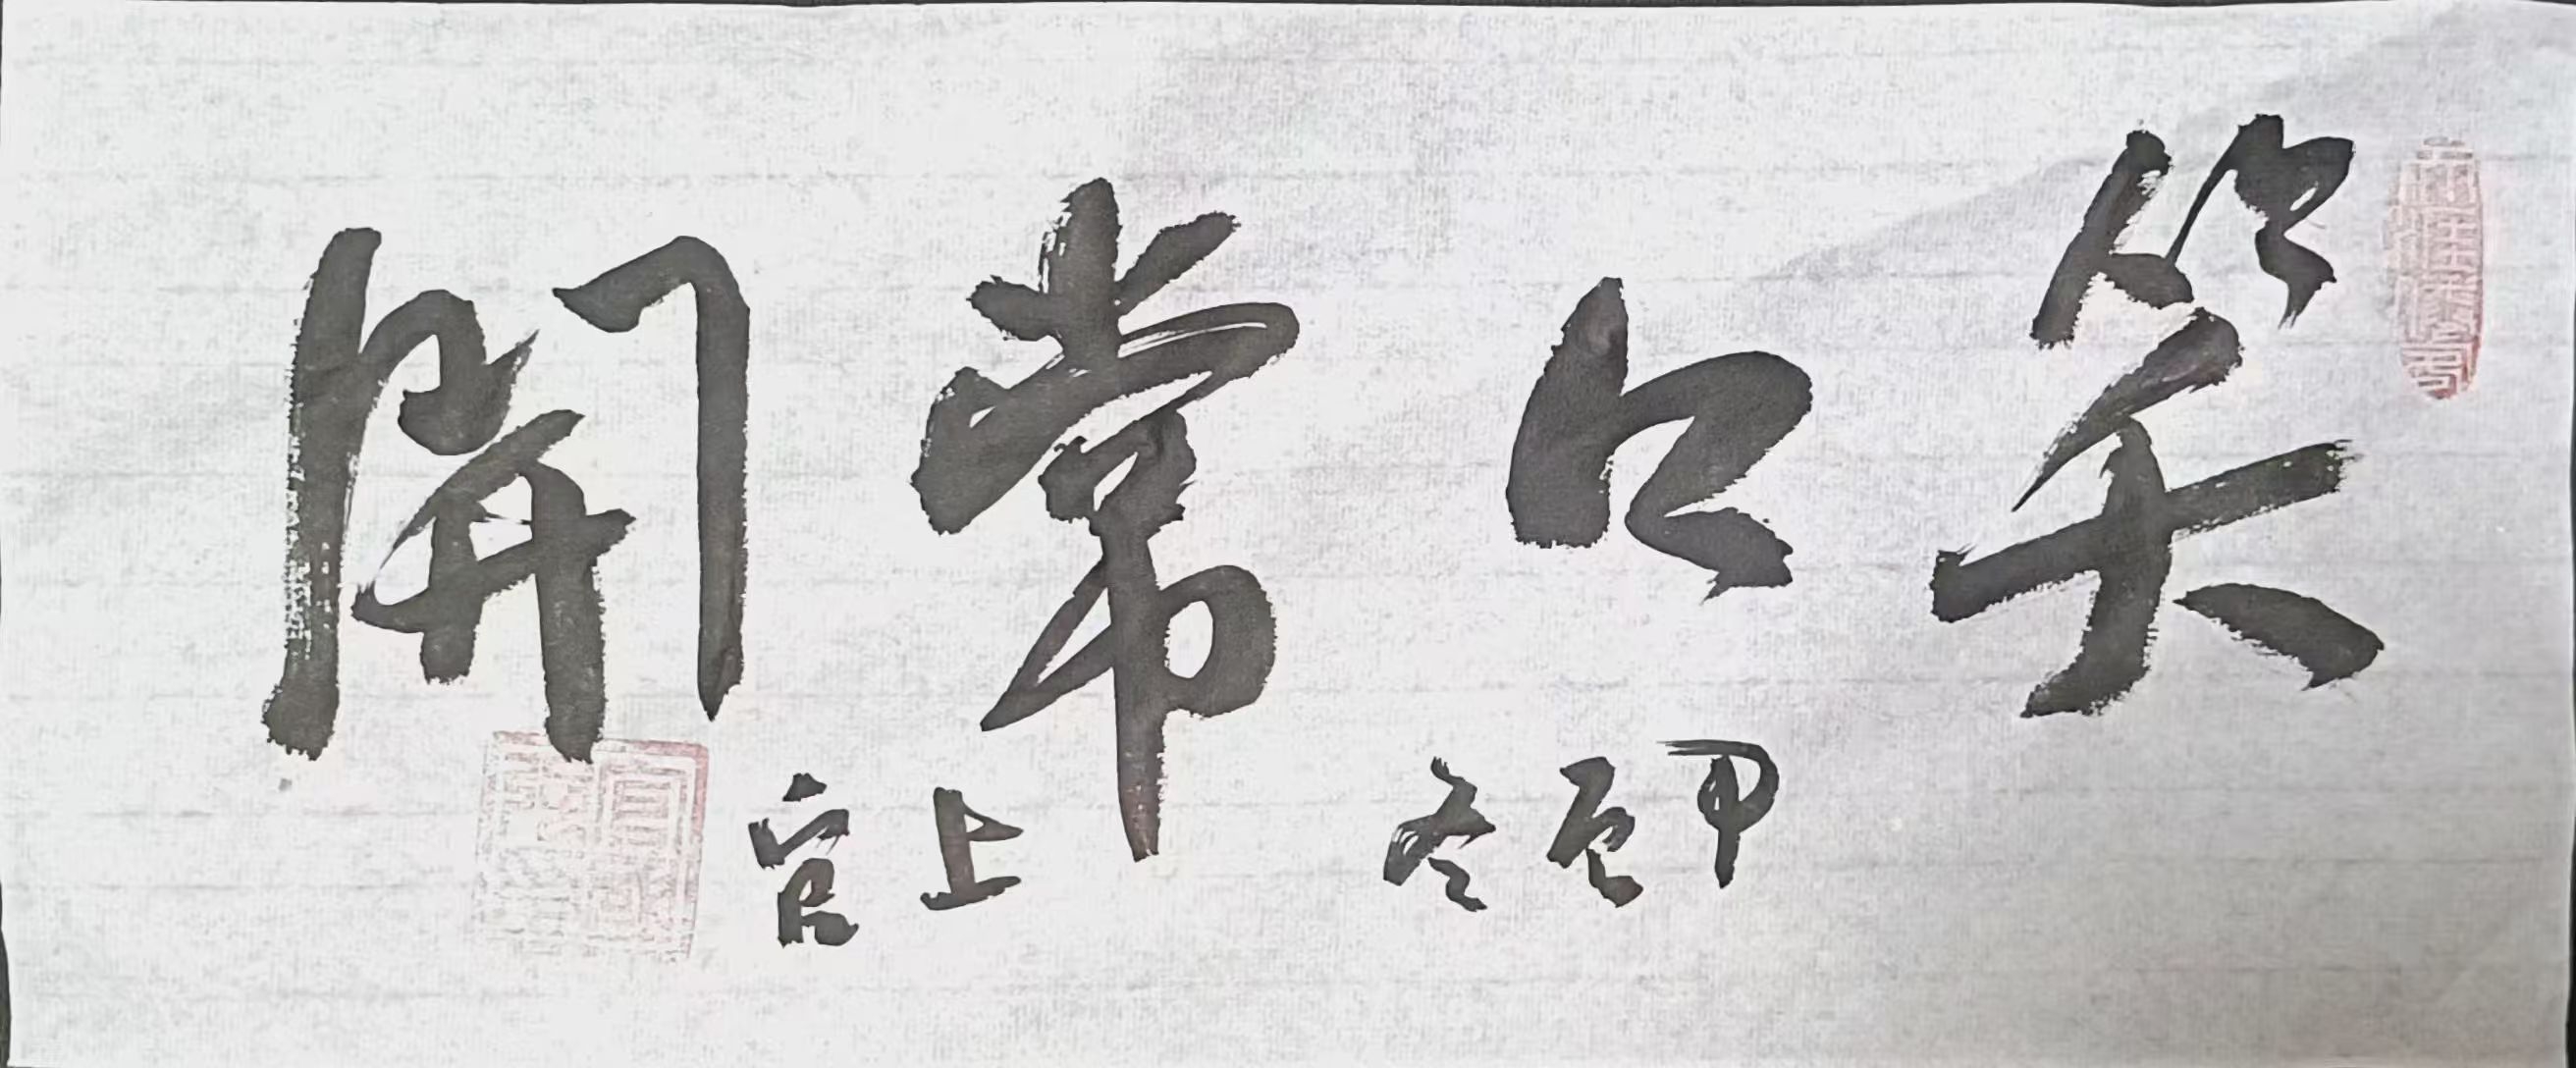 笑口常開
甲辰冬
上官